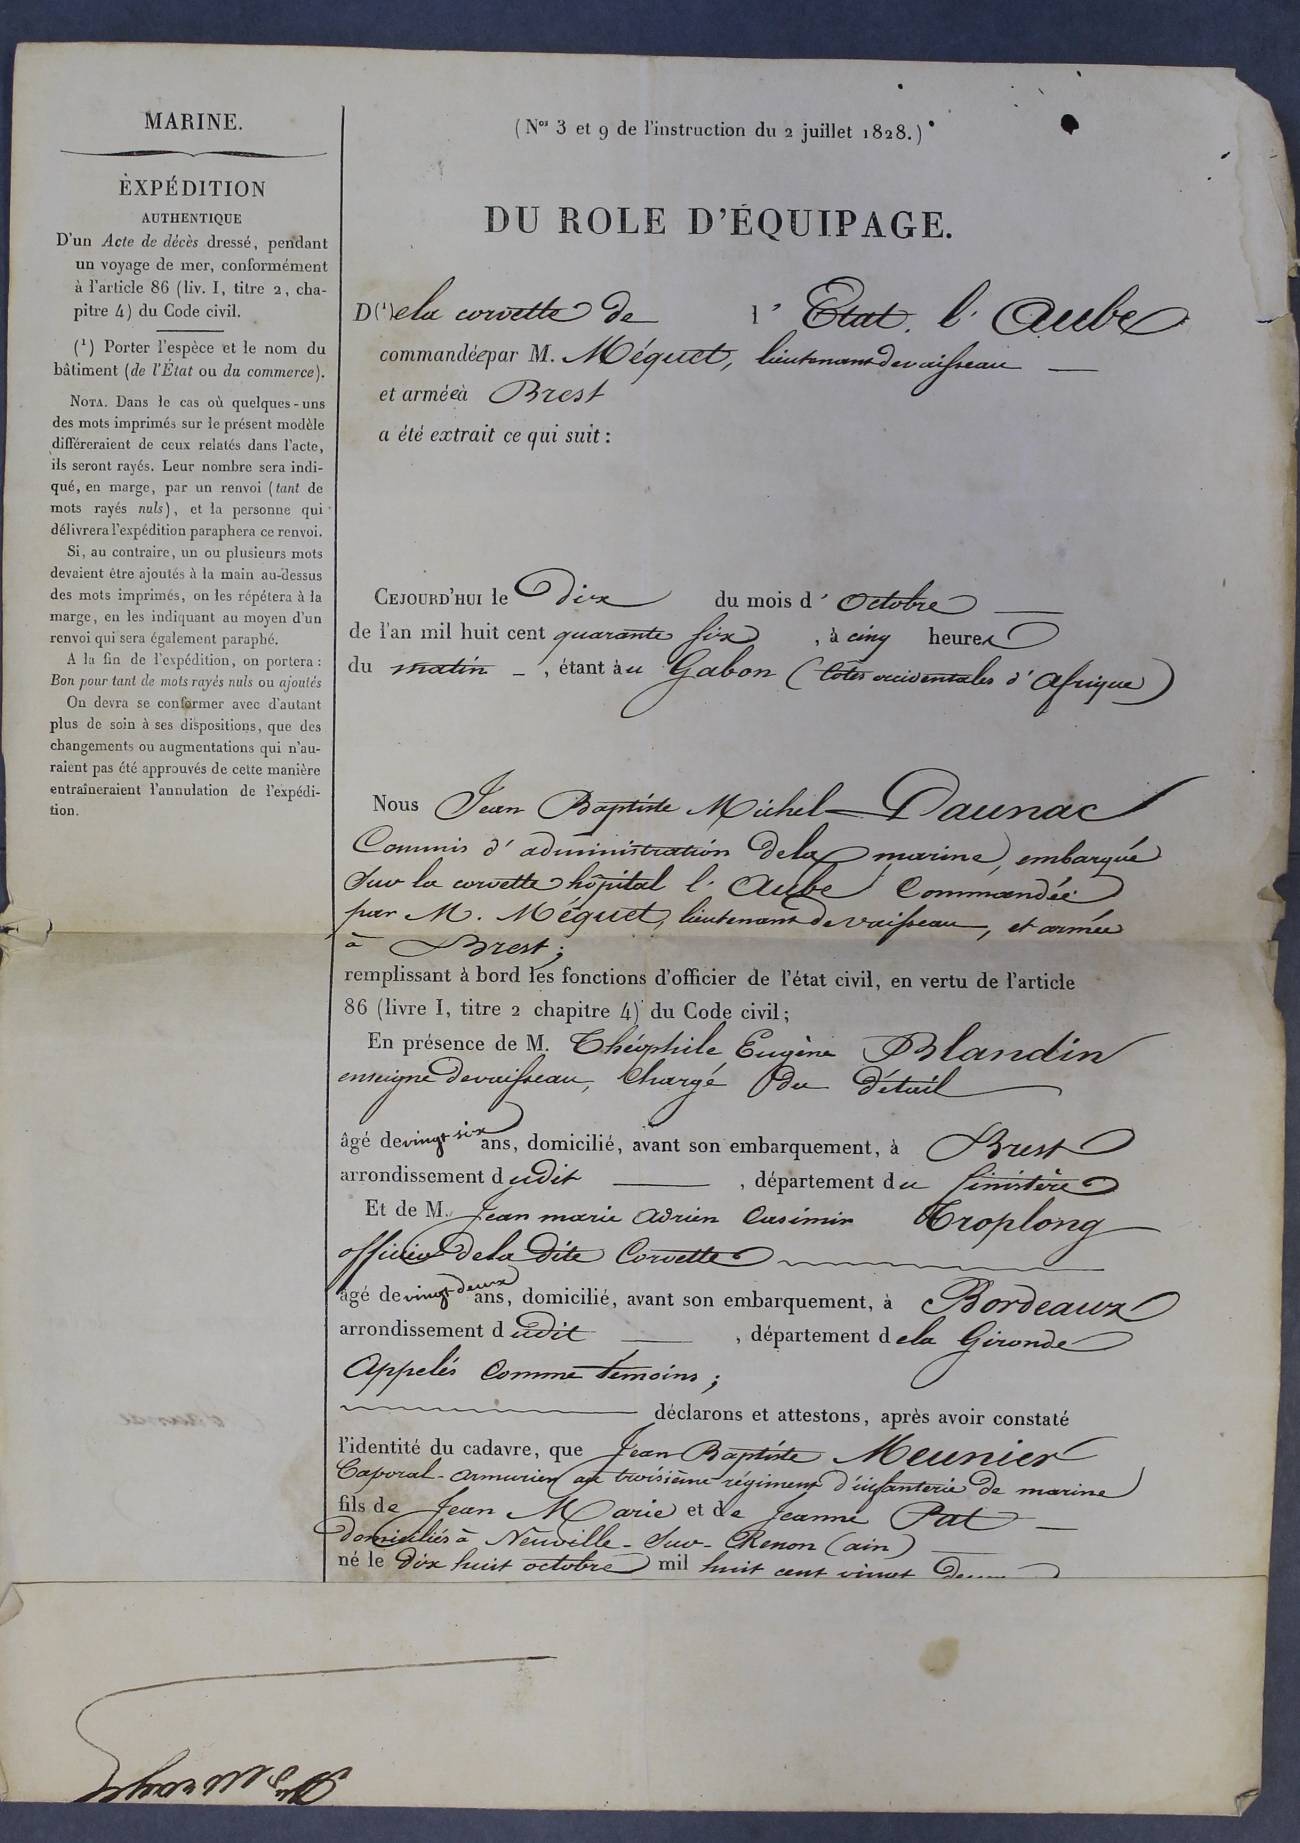 MARINE.
EXPÉDITION
AUTHENTIQUE
D'un Acte de décès dressé, pendant
un voyage de mer, conformément
à l'article 86 (liv. I, titre 2, cha-
pitre 4) du Code civil.
(1) Porter l'espèce et le nom du
bâtiment (de l'État ou du commerce).
NOTA. Dans le cas où quelques-uns
des mots imprimés sur le présent modèle
différeraient de ceux relatés dans l'acte,
ils seront rayés. Leur nombre sera indi-
qué, en marge, par un renvoi (tant de
mots rayés nuls), et la personne qui
délivrera l'expédition paraphera ce renvoi.
Si, au contraire, un ou plusieurs mots
devaient être ajoutés à la main au-dessus
des mots imprimés, on les répétera à la
marge, en les indiquant au moyen d'un
renvoi qui sera également paraphé.
A la fin de l'expédition, on portera :
Bon pour tant de mots rayés nuls ou ajoutés
On devra se conformer avec d'autant
plus de soin à ses dispositions, que des
changements ou augmentations qui n'au-
raient pas été approuvés de cette manière
entraîneraient l'annulation de l'expédi-
tion.
(Nos 3 et 9 de l'instruction du 2 juillet 1828.)
DU ROLE D'ÉQUIPAGE.
D(1)e la corvette de l'Etat. l'Aube
commandée par M. Méquet, lieutenant de vaisseau
et armée à Brest
a été extrait ce qui suit :
CEJOURD'HUI le Dix du mois d'Octobre
de l'an mil huit cent quarante six, à cinq heures
du matin, étant au Gabon (Côtes occidentales d'Afrique)
Nous Jean Baptiste Michel Daunac
Commis d'administration de la marine, embarqué
Sur la corvette hôpital l'Aube Commandée
par M. Méquet, lieutenant de vaisseau, et armée
à Brest;
remplissant à bord les fonctions d'officier de l'état civil, en vertu de l'article
86 (livre I, titre 2 chapitre 4) du Code civil;
En présence de M. Théophile Eugène Blandin
enseigne de vaisseau, Chargé du détail
âgé de vingt-six ans, domicilié, avant son embarquement, à Brest
arrondissement dudit, département du finistère
Et de M. Jean marie adrien Casimir Troplong
officier de la dite Corvette
âgé de vingt-deux ans, domicilié, avant son embarquement, à Bordeaux
arrondissement dudit, département de la Gironde
Appelés Comme temoins;
déclarons et attestons, après avoir constaté
l'identité du cadavre, que Jean Baptiste Meunier
Caporal-armurier au troisième régiment d'infanterie de marine
fils de Jean Marie et de Jeanne Put
domiciliés à Neuville-Sur-Renon (ain)
né le dix huit octobre mil huit cent vingt Deux